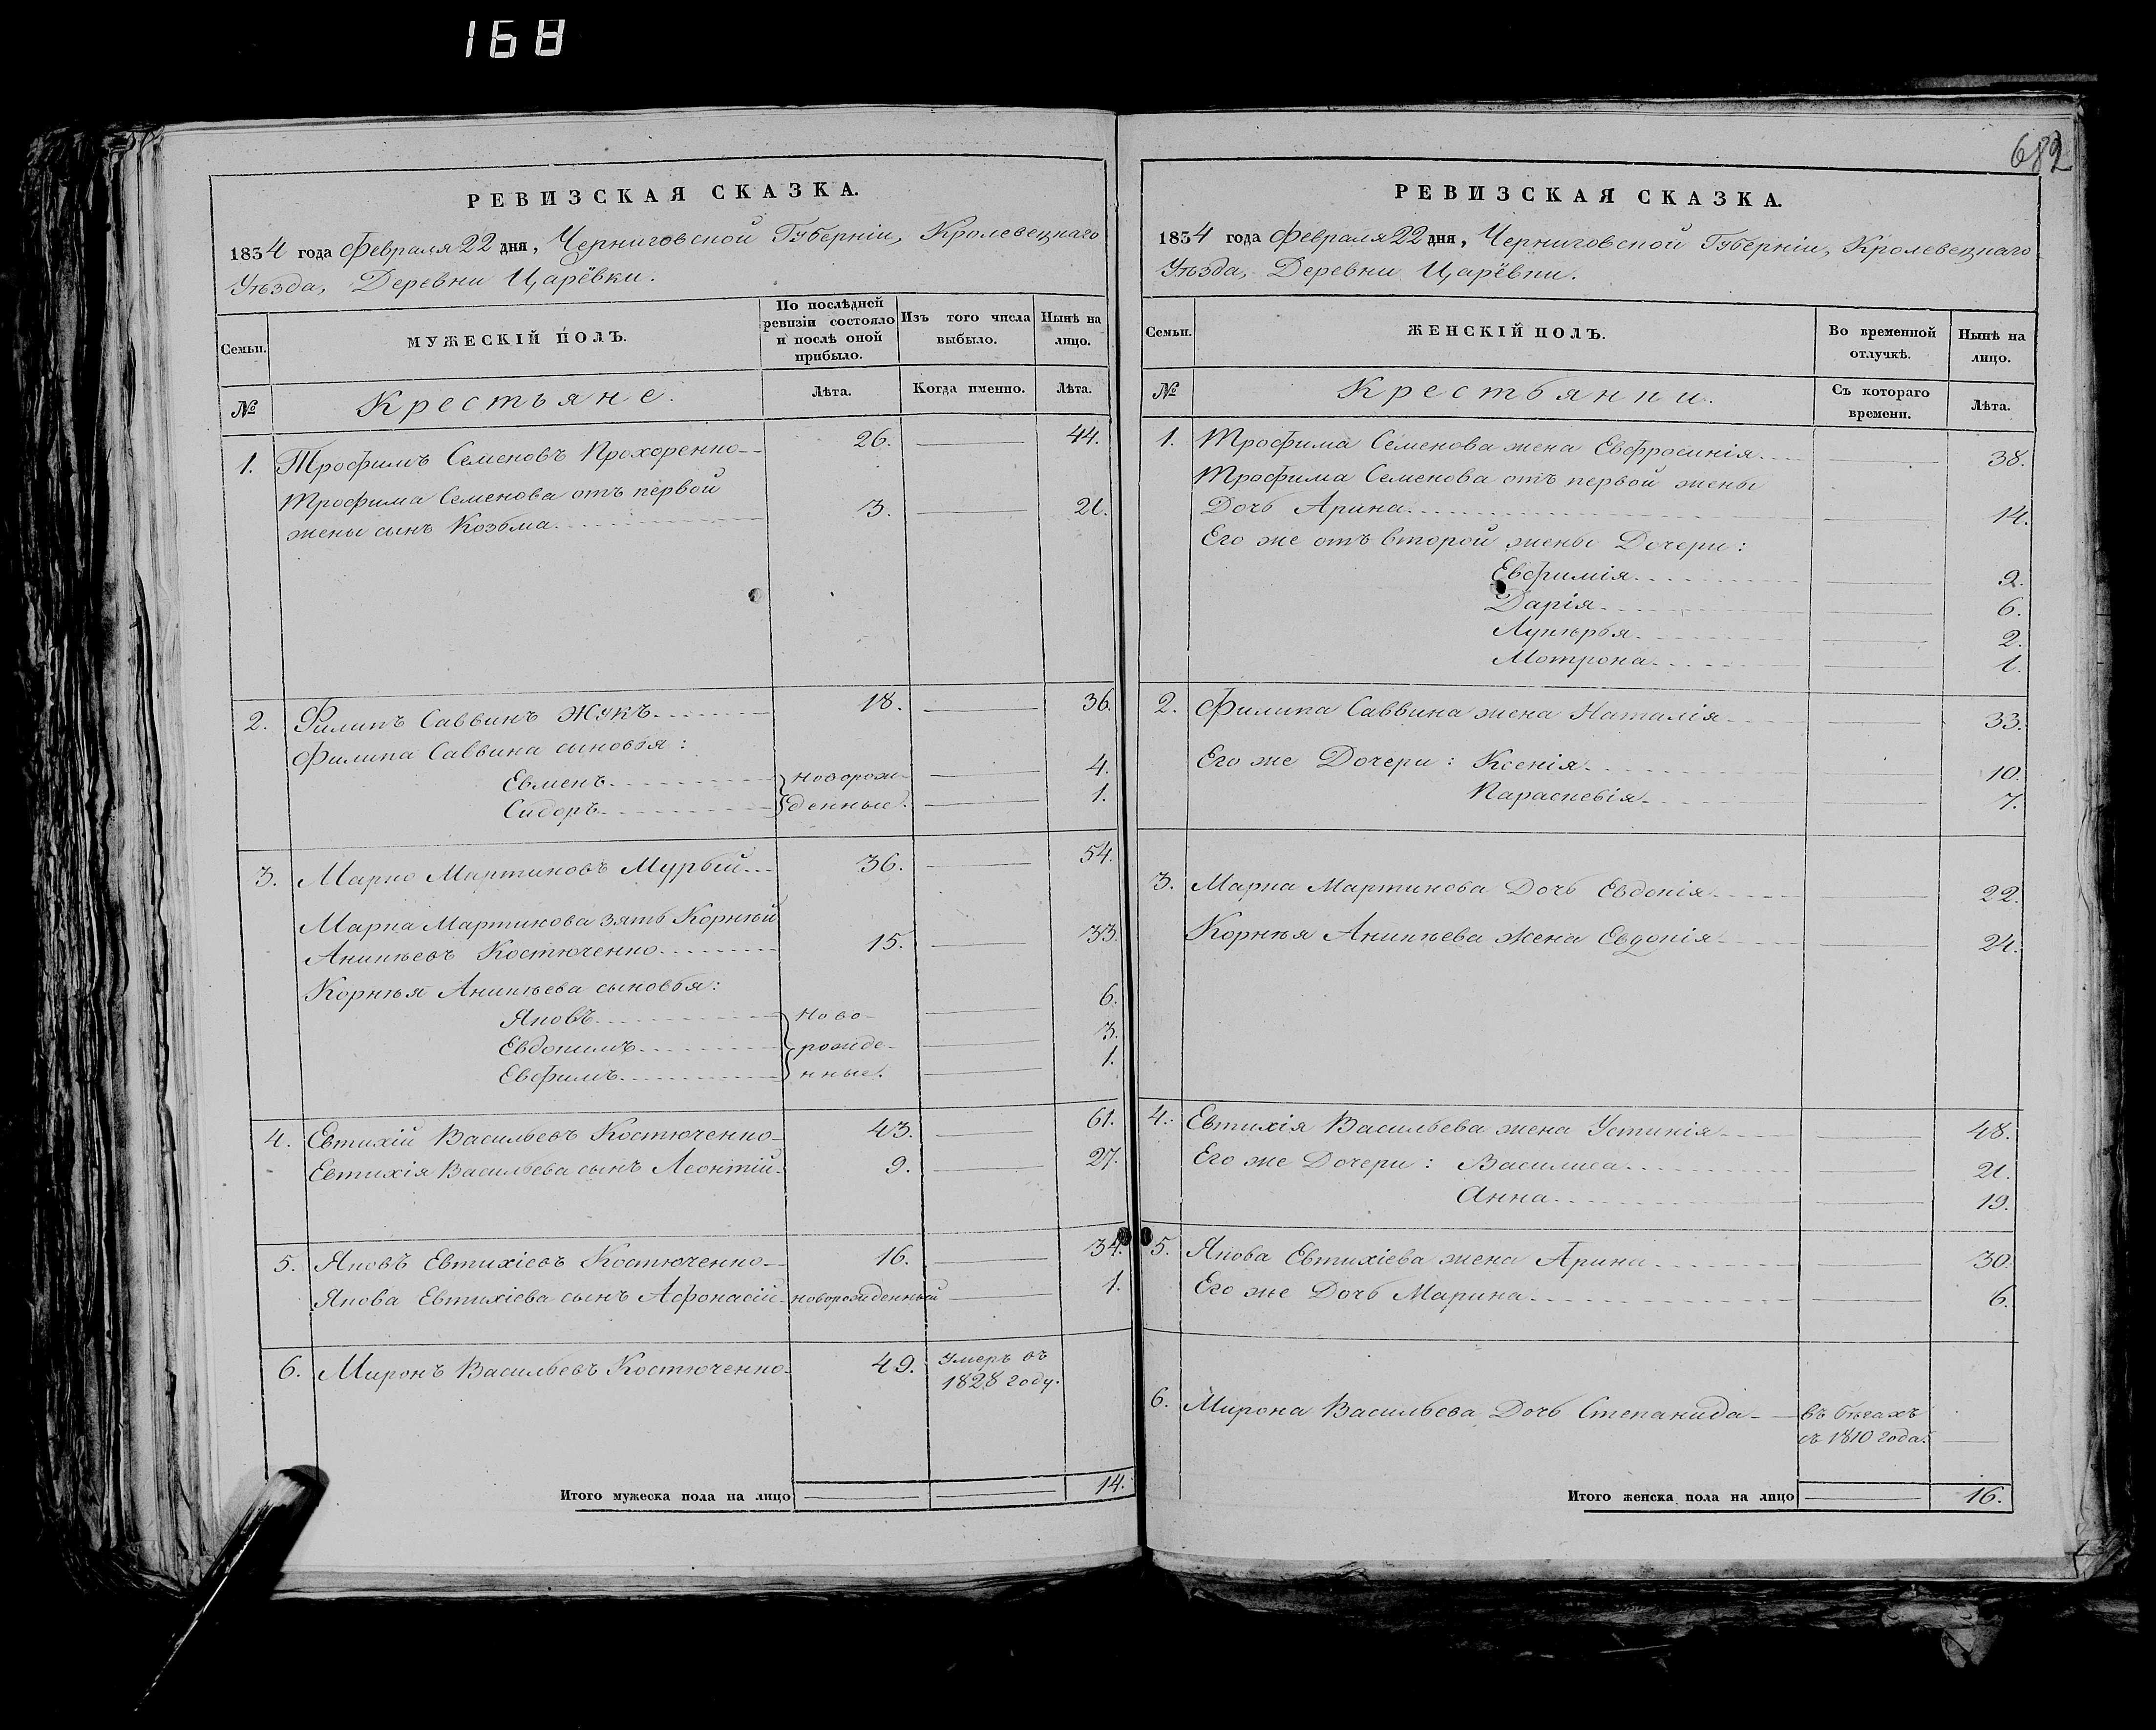 168
682
РЕВИЗСКАЯ СКАЗКА.
1834 года Февраля 22 дня, Черниговской Губерніи, Кролевецкаго
Уѣзда, Деревни Царёвки.
Семьи.
МУЖЕСКІЙ ПОЛЪ.
По послѣдней ревизіи состояло и послѣ оной прибыло.
Изъ того числа выбыло.
Нынѣ на лицо.
№
Крестьяне.
Лѣта.
Когда именно.
Лѣта.
1. Трофимъ Семеновъ Прохоренко 26. 44.
Трофима Семенова отъ первой
жены сынъ Козьма 3. 21.
2. Филипъ Саввинъ Жукъ 18. 36.
Филипа Саввина синовья:
Евменъ новорож- 4.
Сидоръ денные. 1.
3. Марко Мартиновъ Мурбій 36. 54.
Марка Мартинова зять Корнѣй
Аникѣевъ Костюченко 15. 33.
Корнѣя Аникѣева сыновья:
Яковъ ново- 6.
Евдокимъ рожде- 3.
Евфимъ нные. 1.
4. Евтихій Васильевъ Костюченко 43. 61.
Евтихія Васильева сынъ Леонтій 9. 27.
5. Яковъ Евтихіевъ Костюченко 16. 34.
Якова Евтихіева сынъ Афонасій новорожденный 1.
6. Миронъ Васильевъ Костюченко 49. Умеръ въ
1828 году.
Итого мужеска пола на лицо 14.
РЕВИЗСКАЯ СКАЗКА.
1834 года Февраля 22 дня, Черниговской Губерніи, Кролевецкаго
Уѣзда, Деревни Царёвки.
Семьи.
ЖЕНСКІЙ ПОЛЪ.
Во временной отлучкѣ.
Нынѣ на лицо.
№
Крестьянки.
Съ котораго времени.
Лѣта.
1. Трофима Семенова жена Евфросинія 38.
Трофима Семенова отъ первой жены
Дочь Арина 14.
Его же отъ второй жены Дочери:
Евфимія 9.
Дарія 6.
Лукѣрья 2.
Мотрона 1.
2. Филипа Саввина жена Наталія 33.
Его же Дочери: Ксенія 10.
Параскевія 7.
3. Марка Мартинова Дочь Евдокія 22.
Корнѣя Аникѣева Жена Евдокія 24.
4. Евтихія Васильева жена Устинія 48.
Его же Дочери: Василиса 21.
Анна 19.
5. Якова Евтихіева жена Арина 30.
Его же Дочь Марина 6.
6. Мирона Васильева Дочь Степанида въ бѣгахъ
съ 1810 года.
Итого женска пола на лицо 16.